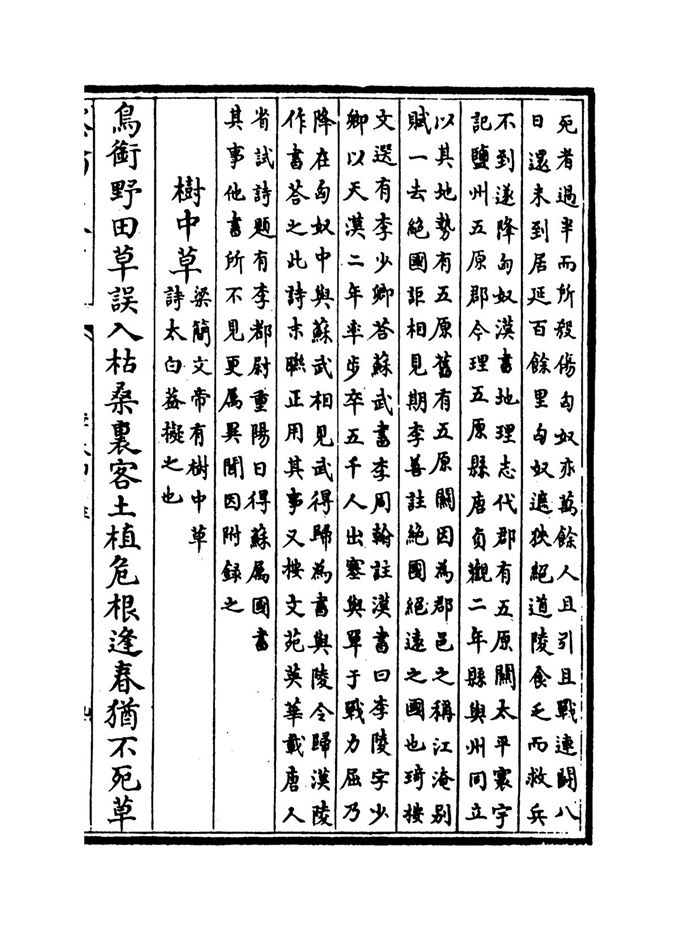 死者過半而所殺傷匈奴亦萬餘人且引且戰連鬬八
日還未到居延百餘里匈奴遮狹絕道陵食乏而救兵
不到遂降匈奴漢書地理志代郡有五原關太平寰宇
記鹽州五原郡今理五原縣唐貞觀二年縣與州同立
以其地勢有五原舊有五原關因為郡邑之稱江淹别
賦一去絕國詎相見期李善註絕國絕遠之國也琦按
文選有李少卿答蘇武書李周翰註漢書曰李陵字少
卿以天漢二年率步卒五千人出塞與單于戰力屈乃
降在匈奴中與蘇武相見武得歸為書與陵令歸漢陵
作書答之此詩末聯正用其事又按文苑英華載唐人
省試詩題有李都尉重陽日得蘇屬國書
其事他書所不見更属異聞因附録之
樹中草
梁簡文帝有樹中草
詩太白葢擬之也
鳥銜野田草誤入枯桑裏客土植危根逢春猶不死草